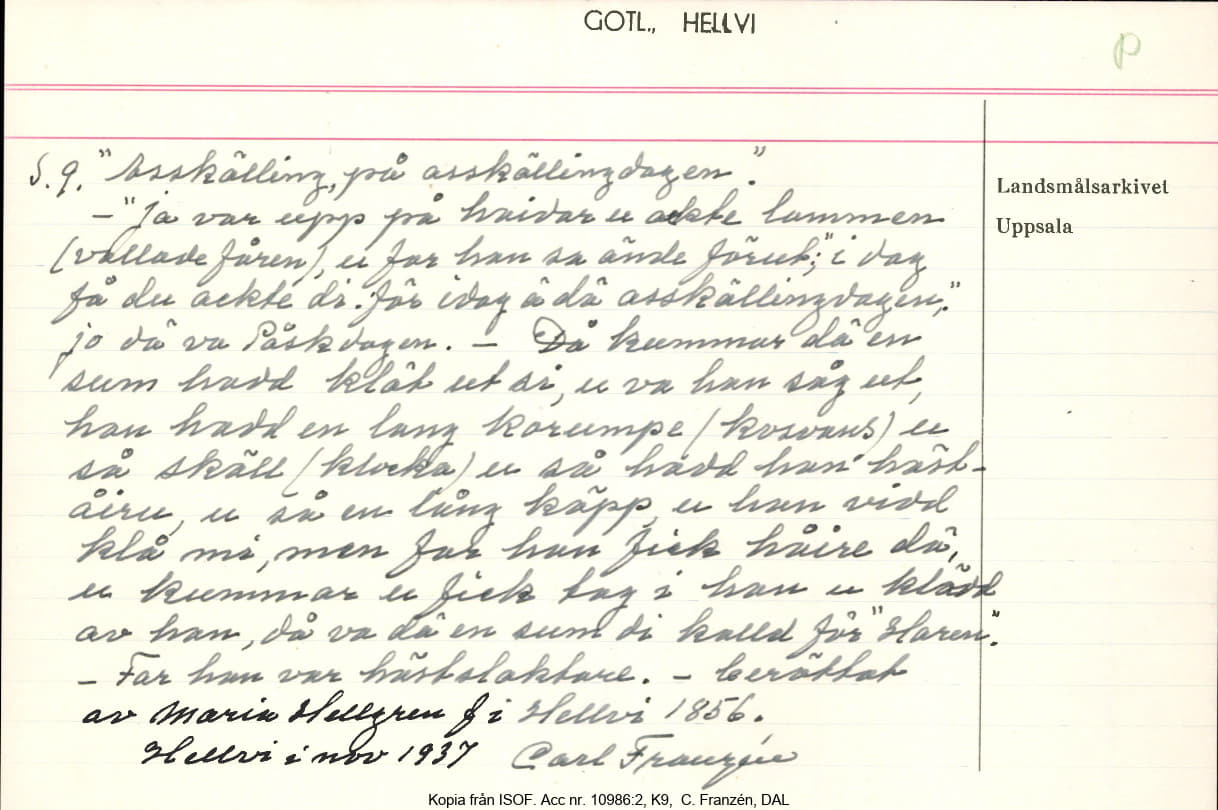 GOTL., HELLVI
P
S. 9. "Asskälling, på asskällingdagen".
Landsmålsarkivet
Uppsala
– "ja var upp på haidar u ackte lammen
(vallade fåren), u far han sa ände förut; "i dag
få du ackte di. för idag ä dä asskällingdagen,"
jo dä va Påskdagen. – Då kummar dä en
sum hadd klät ut si, u va han såg ut,
han hadd en lang korumpe (kosvans) u
så skäll (klocka) u så hadd han häst-
åiru, u så en lång käpp, u han vidd
klå mi, men far han fick håire dä,
u kummar u fick tag i han u klädd
av han, då va dä en sum di kalld för "Haren".
– Far han var hästslaktare. – berättat
av Maria Hellgren f i Hellvi 1856.
Hellvi i nov 1937 Carl Franzén
Kopia från ISOF. Acc nr. 10986:2, K9, C. Franzén, DAL